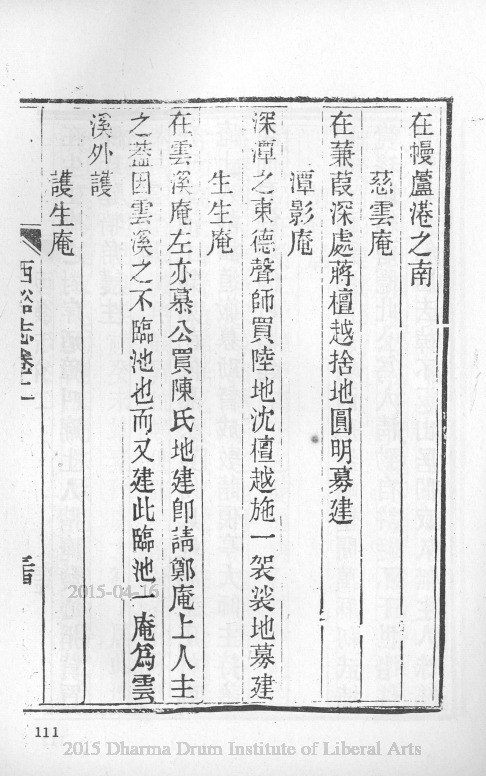 在幔蘆港之南
慈雲庵
在蒹葭深處蔣檀越捨地圓明募建
潭影庵
深潭之東德聲師買陸地沈檀越施一袈裟地募建
生生庵
在雲溪庵左亦慕公買陳氏地建卽請鄭庵上人主
之葢因雲溪之不臨池也而又建此臨池一庵爲雲
溪外護
護生庵
西谿志卷二
2015-04-16
111
2015 Dharma Drum Institute of Liberal Arts